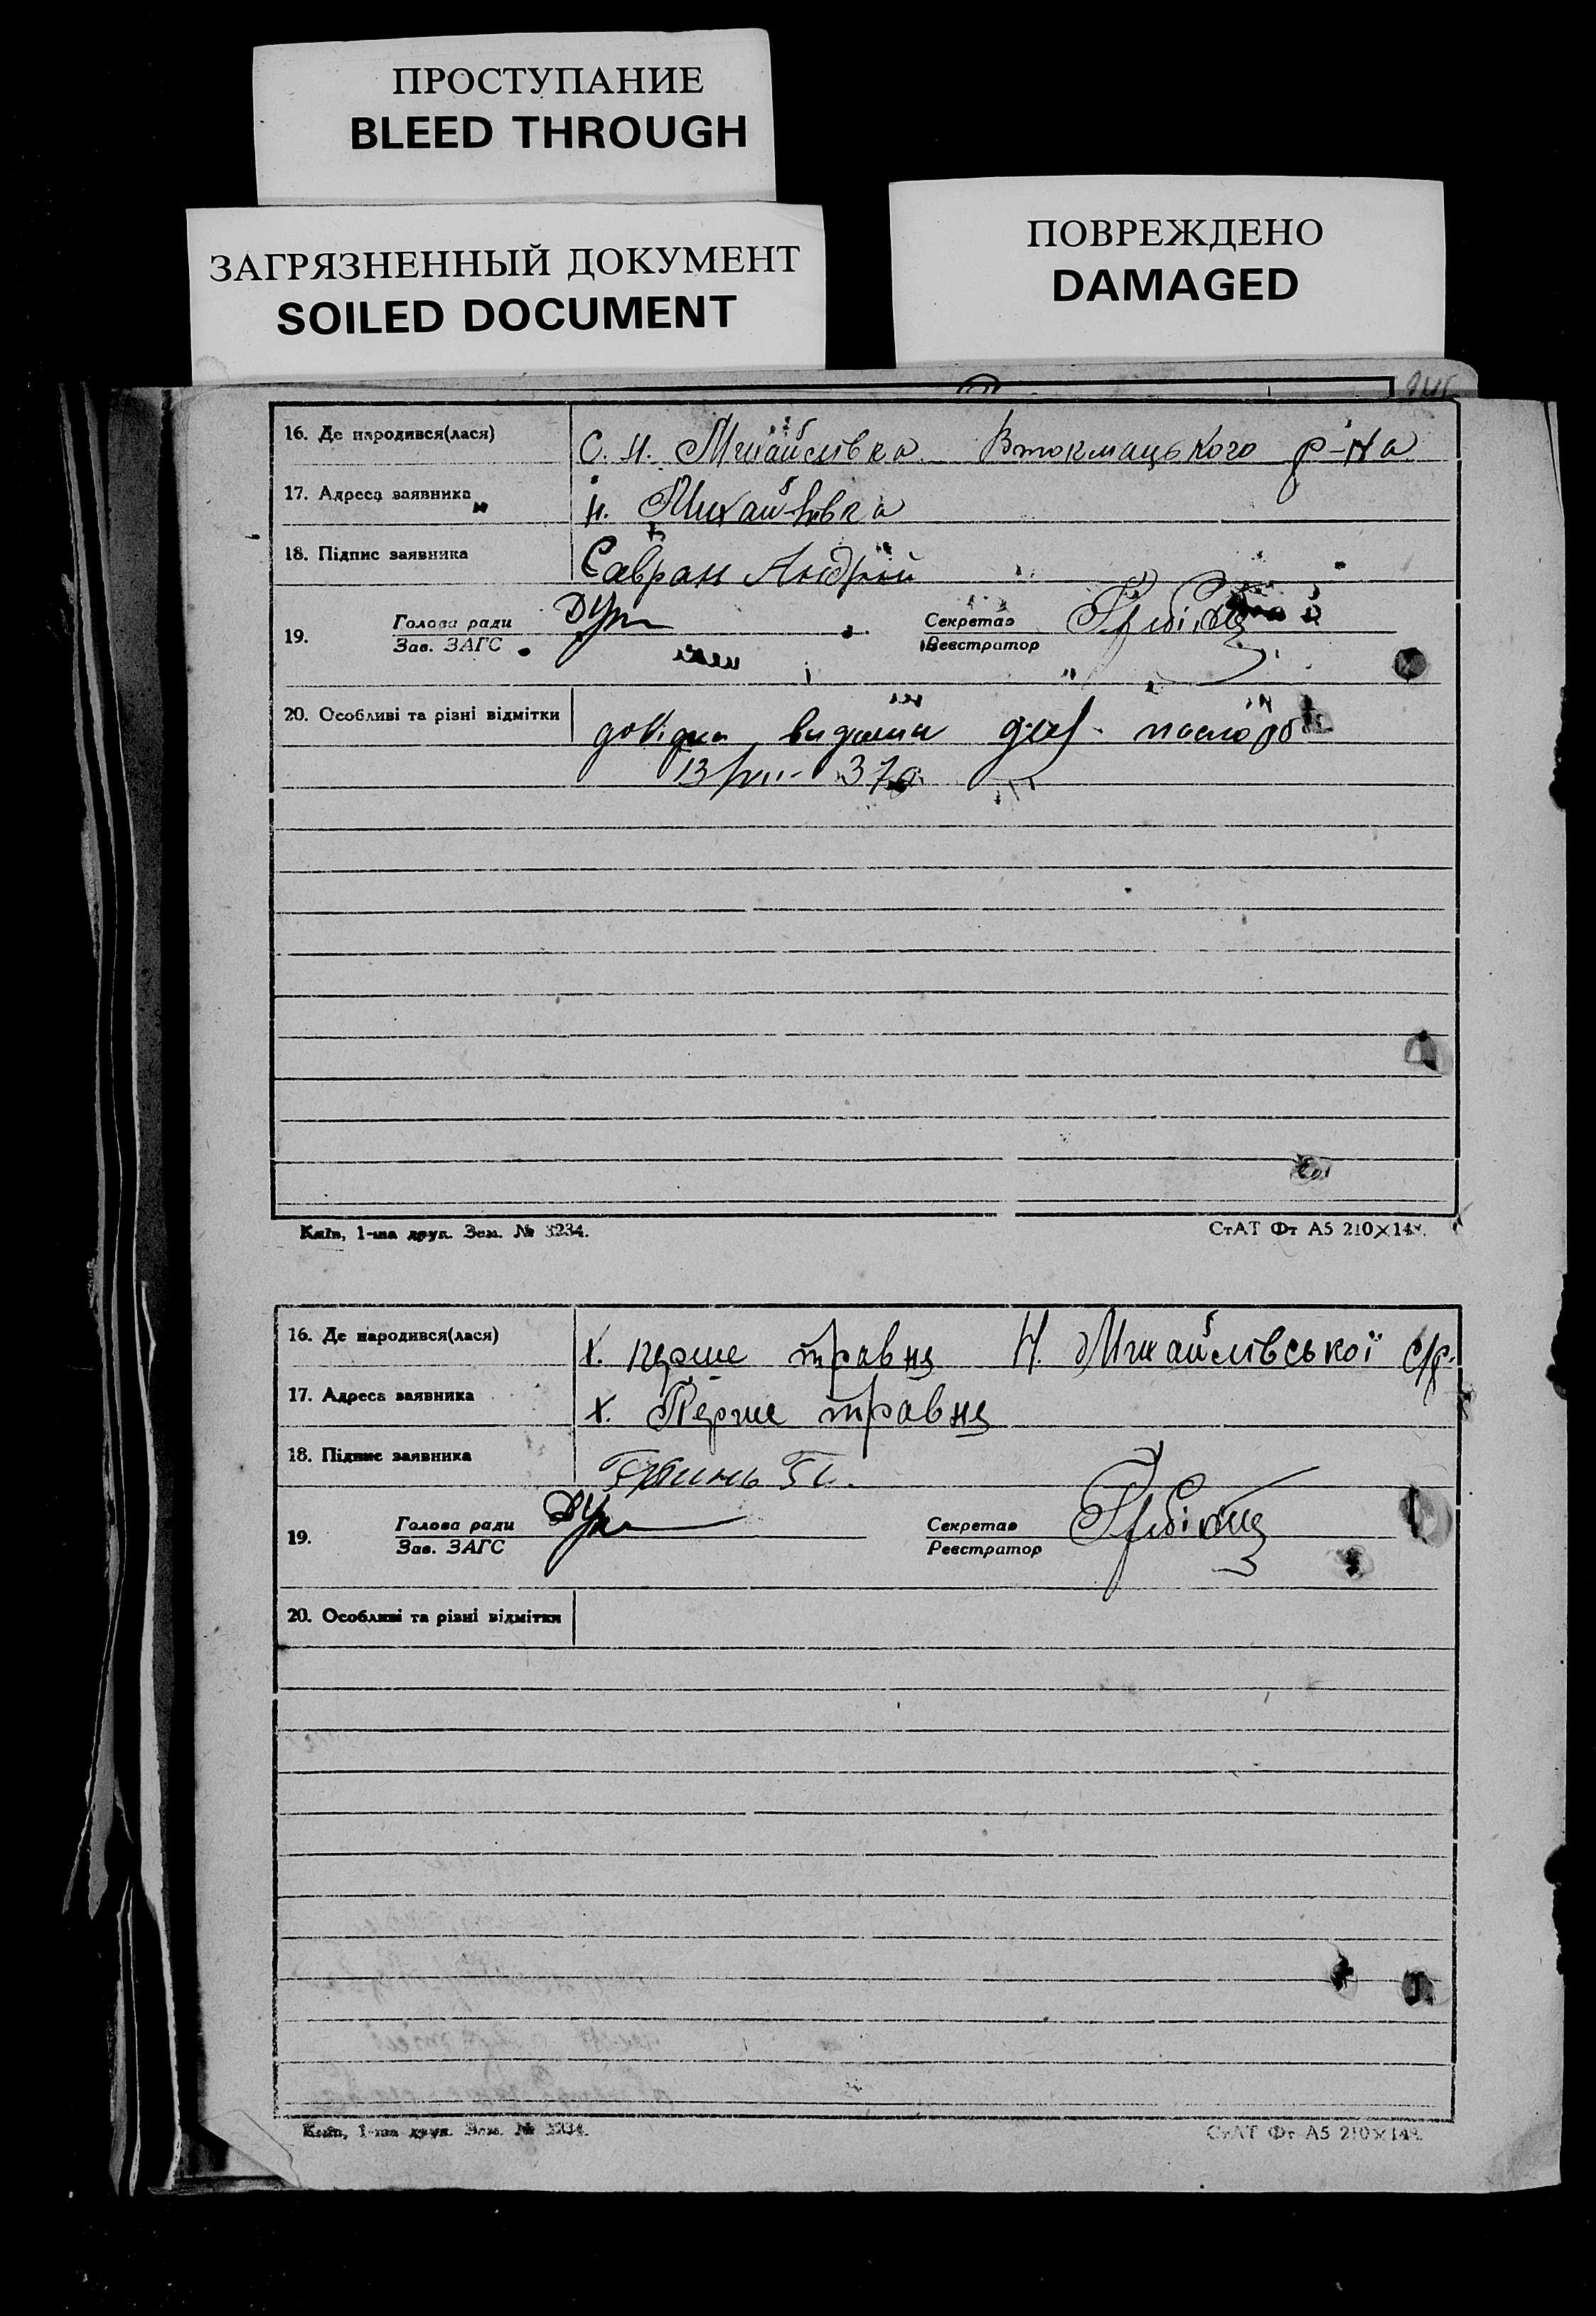 ПРОСТУПАНИЕ
BLEED THROUGH
ЗАГРЯЗНЕННЫЙ ДОКУМЕНТ
SOILED DOCUMENT
ПОВРЕЖДЕНО
DAMAGED
16. Де народився(лася) С. Н. Михайлівка Втокмацького р-на
17. Адреса заявника Н. Михайлівка
18. Підпис заявника Савран Андрій
19. Голова ради Секретар
Зав. ЗАГС Реєстратор
20. Особливі та різні відмітки довідка видана для паспорт
13/VII- 37р
Київ, 1-ша друк. Зам. № 3234. СтАТ Фт А5 210×148.
16. Де народився(лася) х. перше травня Н. Михайлівської с/р.
17. Адреса заявника х. Перше травня
18. Підпис заявника
19. Голова ради Секретар
Зав. ЗАГС Реєстратор
20. Особливі та різні відмітки
Київ, 1-ша друк. Зам. № 3234. СтАТ Фт А5 210×148.